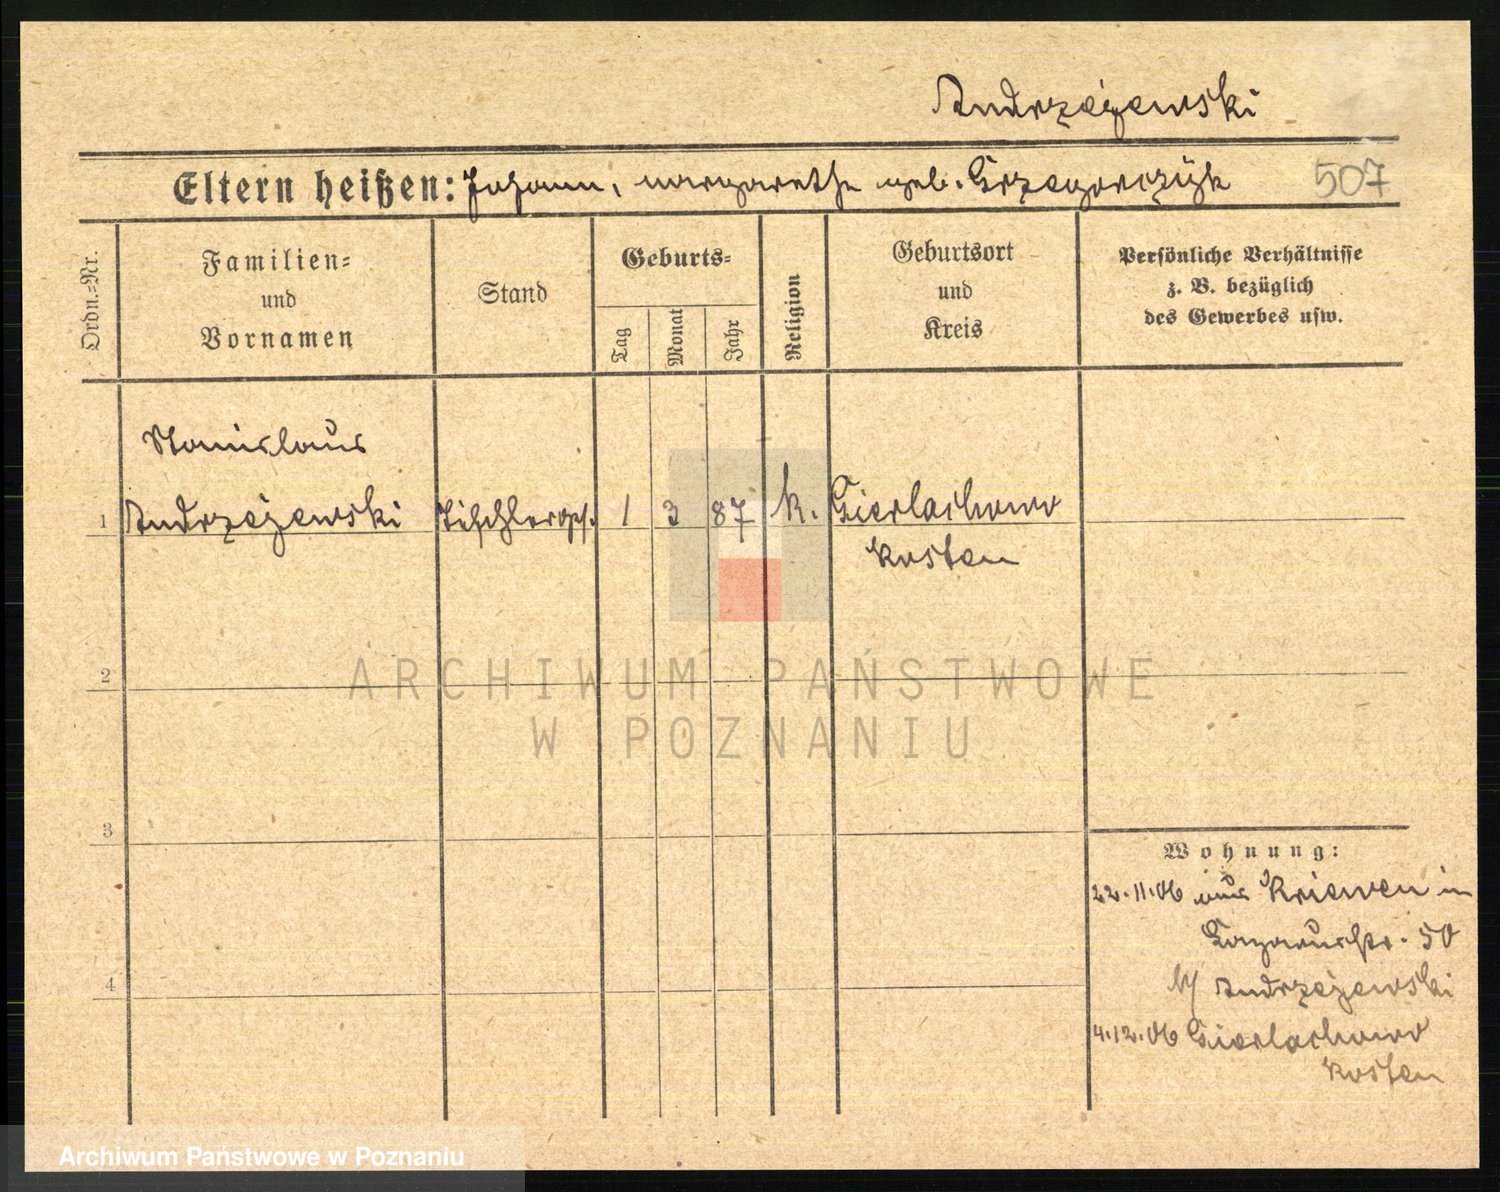 Andrzejewski
Eltern heißen: Johann, Margarethe geb. Grzegorczÿk
507
Ordn.-Nr.
Familien- und Vornamen
Stand
Geburts-
Tag
Monat
Jahr
Religion
Geburtsort und Kreis
Persönliche Verhältnisse
z. B. bezüglich
des Gewerbes usw.
Stanislaus
1 Andrzejewski Tischlerges. 1 3 87 k. Gierlachowo
Kosten
2
ARCHIWUM PAŃSTWOWE
W POZNANIU
3
Wohnung:
22.11.06 aus Kriewen in
Lazarusstr. 50
b/ Andrzejewski
4
4.12.06 Gierlachowo
Kosten
Archiwum Państwowe w Poznaniu